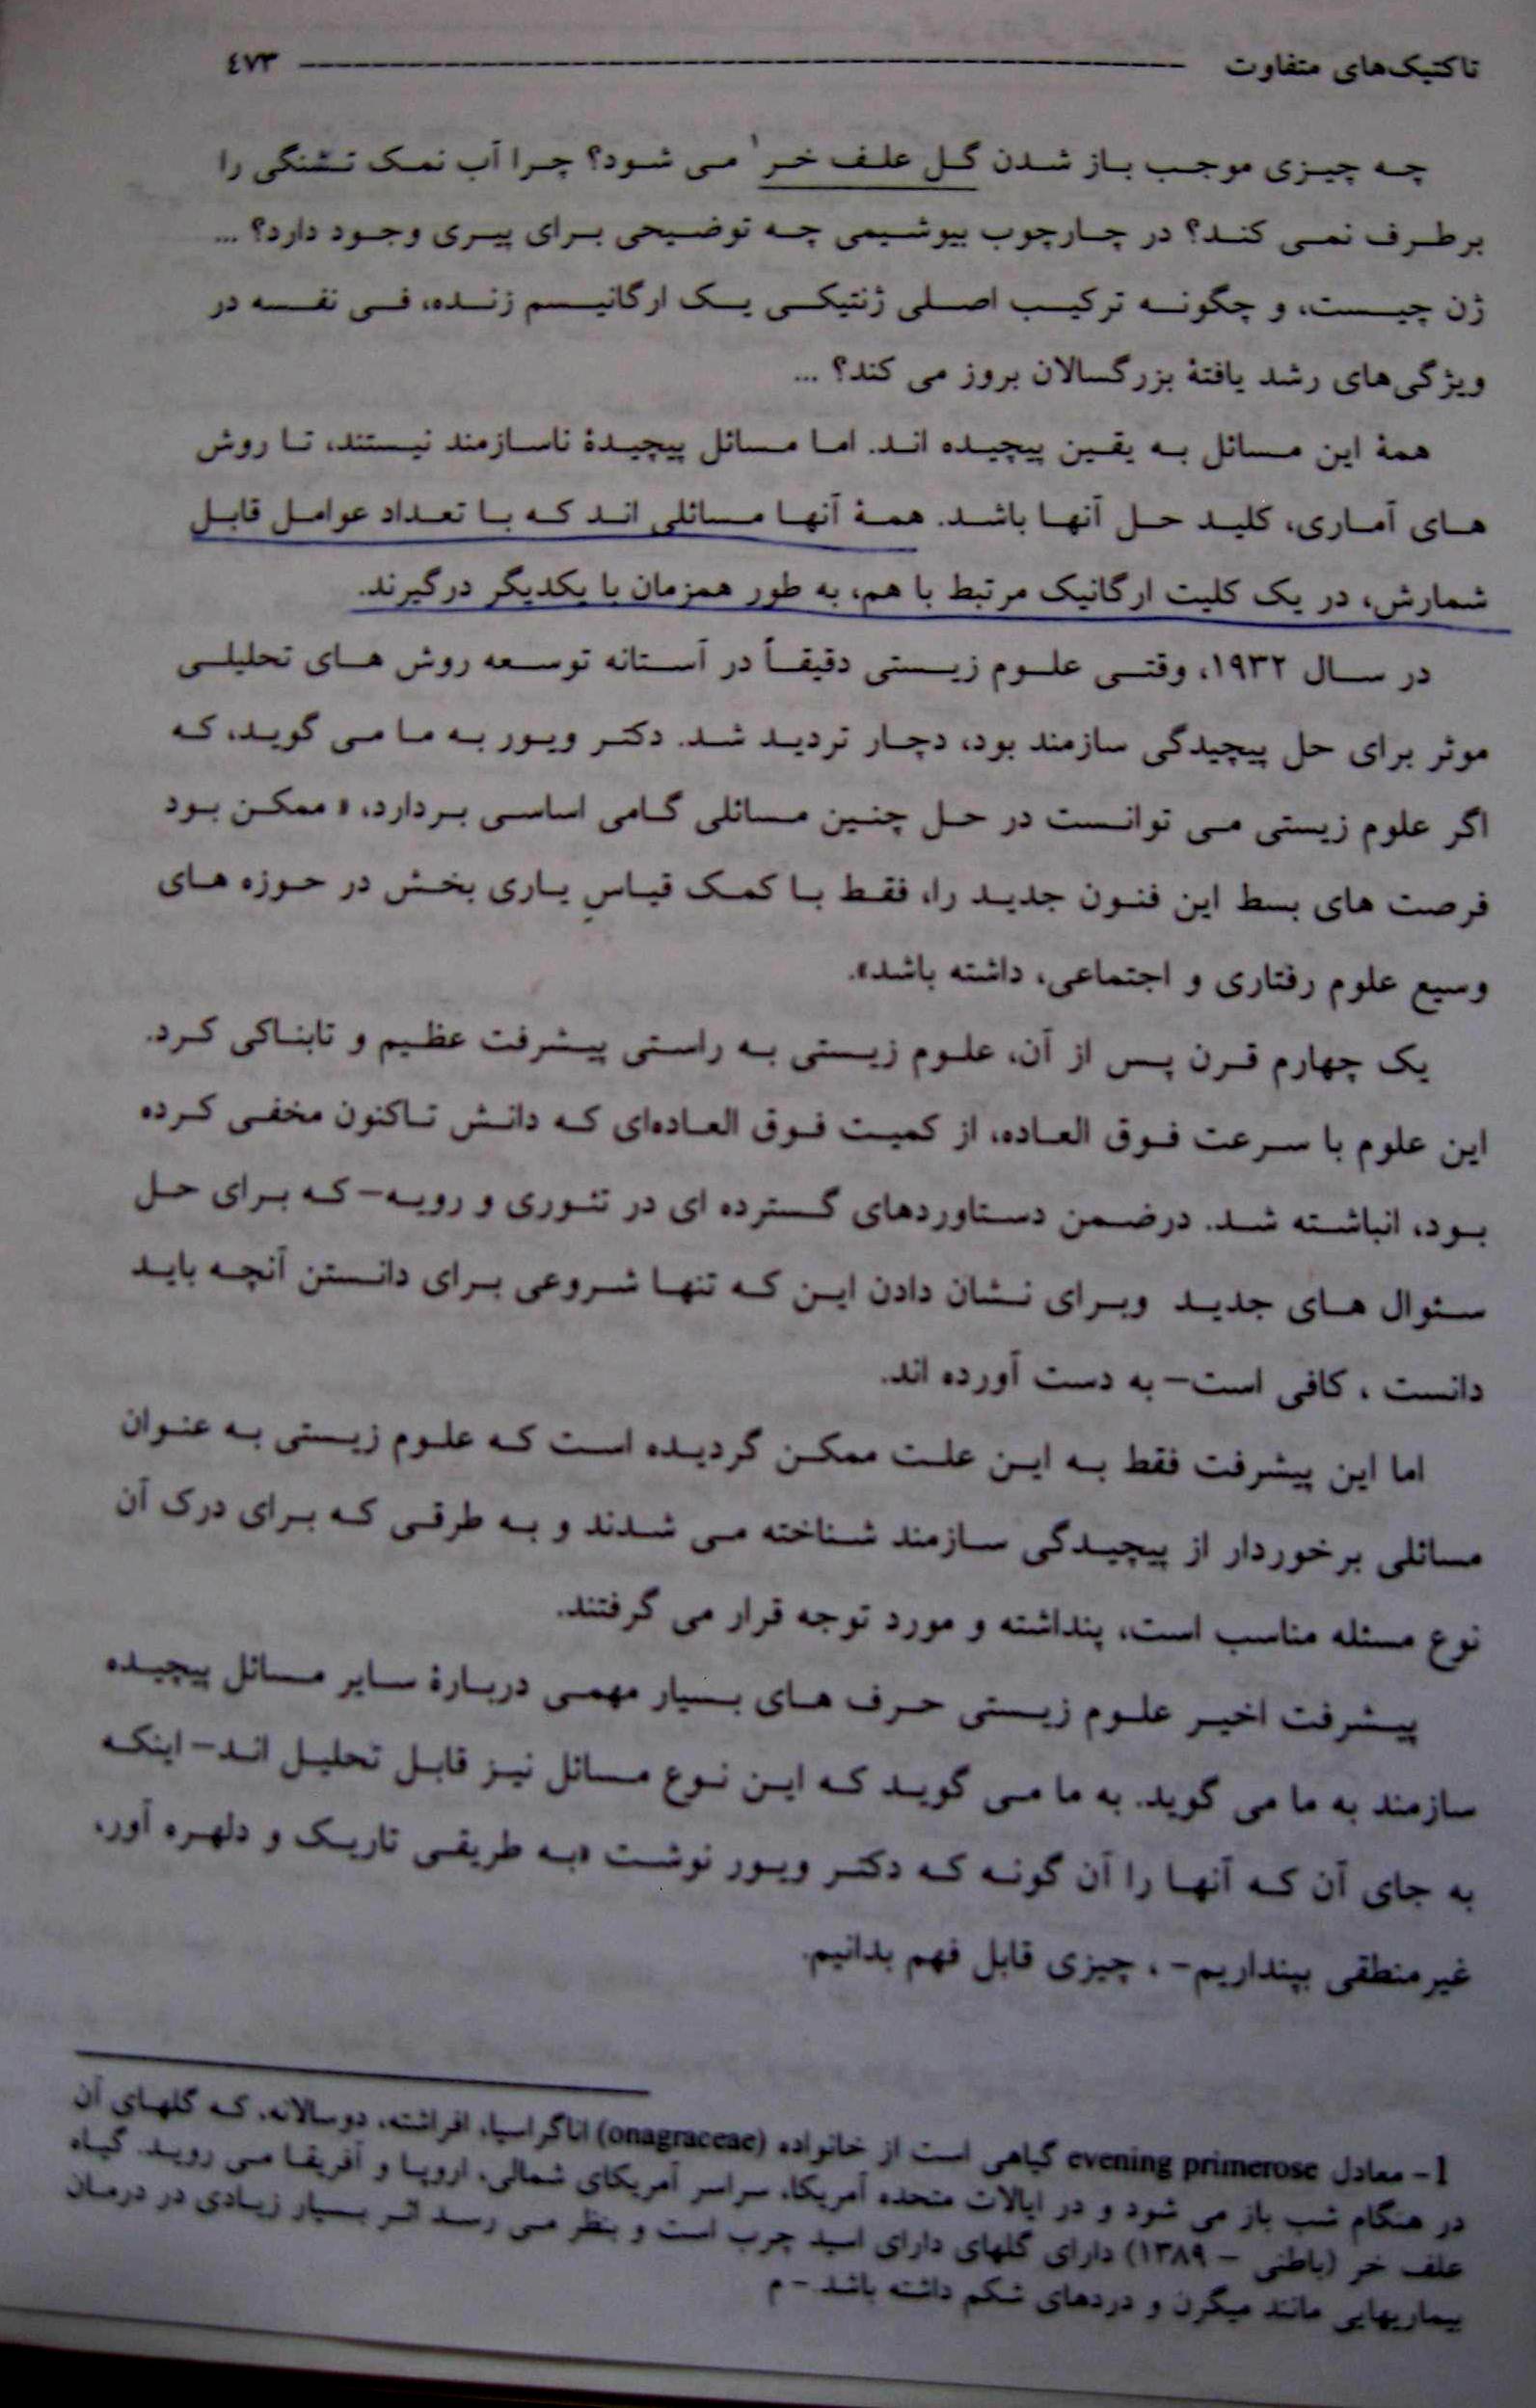 تاکتیک‌های متفاوت ۴۷۳
چه چیزی موجب باز شدن گل علف خر۱ می شود؟ چرا آب نمک تشنگی را
برطرف نمی کند؟ در چارچوب بیوشیمی چه توضیحی برای پیری وجود دارد؟ ...
ژن چیست، و چگونه ترکیب اصلی ژنتیکی یک ارگانیسم زنده، فی نفسه در
ویژگی‌های رشد یافتهٔ بزرگسالان بروز می کند؟ ...
همهٔ این مسائل به یقین پیچیده اند. اما مسائل پیچیدهٔ ناسازمند نیستند، تا روش
های آماری، کلید حل آنها باشد. همهٔ آنها مسائلی اند که با تعداد عوامل قابل
شمارش، در یک کلیت ارگانیک مرتبط با هم، به طور همزمان با یکدیگر درگیرند.
در سال ۱۹۳۲، وقتی علوم زیستی دقیقاً در آستانه توسعه روش های تحلیلی
موثر برای حل پیچیدگی سازمند بود، دچار تردید شد. دکتر ویور به ما می گوید، که
اگر علوم زیستی می توانست در حل چنین مسائلی گامی اساسی بردارد، « ممکن بود
فرصت های بسط این فنون جدید را، فقط با کمک قیاسِ یاری بخش در حوزه های
وسیع علوم رفتاری و اجتماعی، داشته باشد».
یک چهارم قرن پس از آن، علوم زیستی به راستی پیشرفت عظیم و تابناکی کرد.
این علوم با سرعت فوق العاده، از کمیت فوق العاده‌ای که دانش تاکنون مخفی کرده
بود، انباشته شد. درضمن دستاوردهای گسترده ای در تئوری و رویه- که برای حل
سئوال های جدید وبرای نشان دادن این که تنها شروعی برای دانستن آنچه باید
دانست ، کافی است- به دست آورده اند.
اما این پیشرفت فقط به این علت ممکن گردیده است که علوم زیستی به عنوان
مسائلی برخوردار از پیچیدگی سازمند شناخته می شدند و به طرقی که برای درک آن
نوع مسئله مناسب است، پنداشته و مورد توجه قرار می گرفتند.
پیشرفت اخیر علوم زیستی حرف های بسیار مهمی دربارهٔ سایر مسائل پیچیده
سازمند به ما می گوید. به ما می گوید که این نوع مسائل نیز قابل تحلیل اند- اینکه
به جای آن که آنها را آن گونه که دکتر ویور نوشت «به طریقی تاریک و دلهره آور،
غیرمنطقی بپنداریم- ، چیزی قابل فهم بدانیم.
1- معادل evening primerose گیاهی است از خانواده (onagraceae) اناگراسیا، افراشته، دوسالانه، که گلهای آن
در هنگام شب باز می شود و در ایالات متحده آمریکا، سراسر آمریکای شمالی، اروپا و آفریقا می روید. گیاه
علف خر (باطنی - ۱۳۸۹) دارای گلهای دارای اسید چرب است و بنظر می رسد اثر بسیار زیادی در درمان
بیماریهایی مانند میگرن و دردهای شکم داشته باشد - م